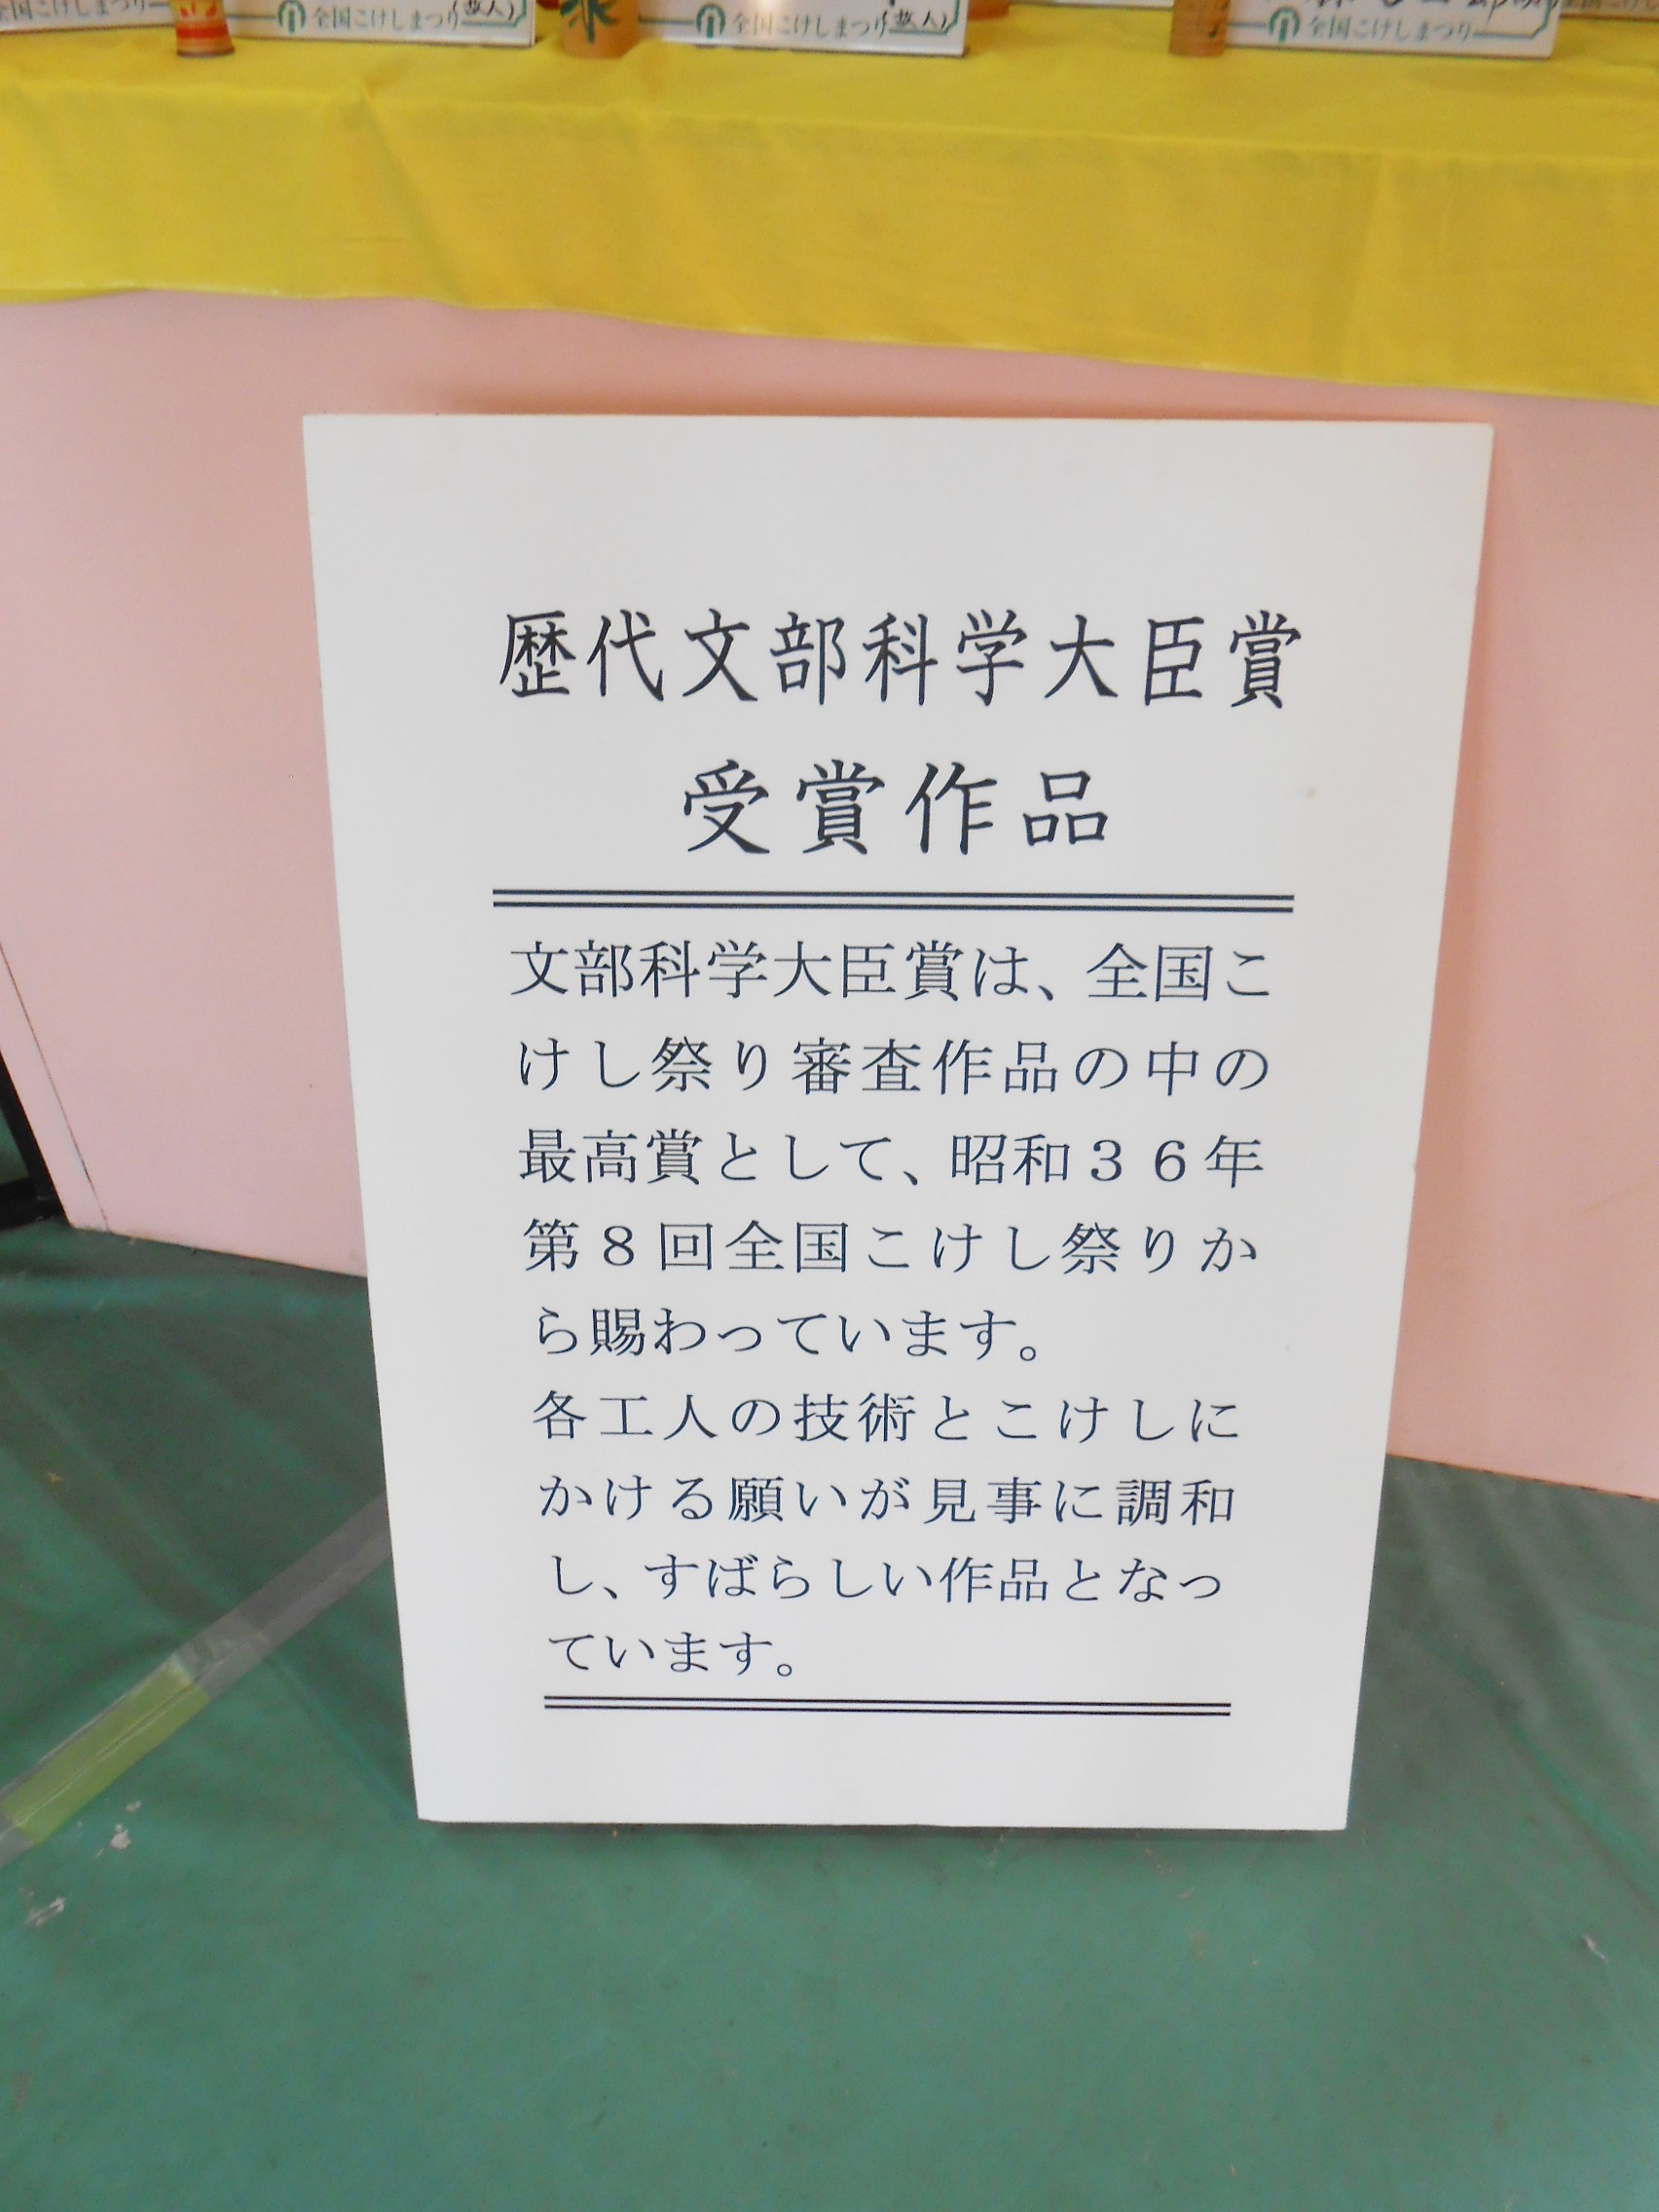 全国こけしまつり
全国こけしまつり
全国こけしまつり
全国こけしまつり
歴代文部科学大臣賞
受賞作品
文部科学大臣賞は、全国こ
けし祭り審査作品の中の
最高賞として、昭和３６年
第８回全国こけし祭りか
ら賜わっています。
各工人の技術とこけしに
かける願いが見事に調和
し、すばらしい作品となっ
ています。